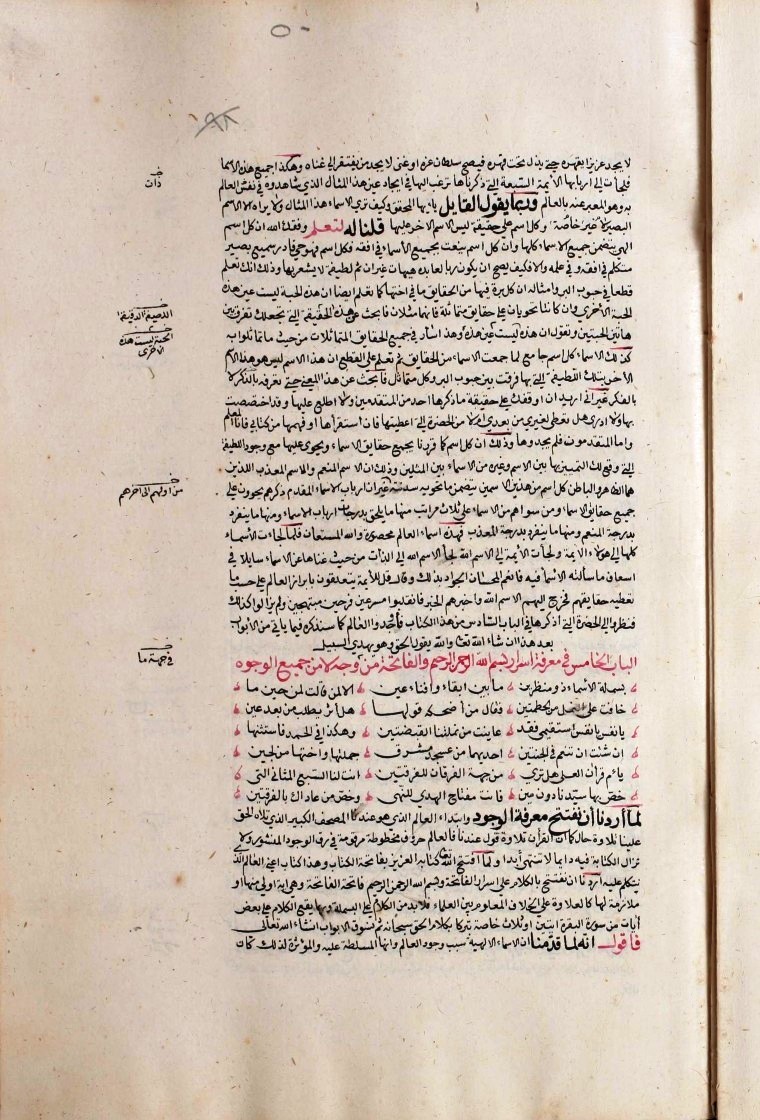 لا يجد عزيزا يقهره حتى يذل تحت قهره فيصح سلطان عزه او غنى لا يجد من يفتقر الى غناه وهكذا جميع هذه الاسما
فلجأت الى اربابها الايمة السبعة التي ذكرناها ترغب اليها في ايجاد عين هذا المثال الذي شاهدوه في نفس العالم
به وهو المعبر عنه بالعالم وربما يقول القايل يايها المحقق وكيف ترى الاسماء هذا المثال ولا يراه الا الاسم
البصير لا غير خاصة وكل اسم على حقيقة ليس الاسم الاخر عليها قلنا له لتعلم وفقك الله ان كل اسم
الهي يتضمن جميع الاسماء كلها وان كل اسم ينعت بجميع الأسماء في افقه فكل اسم فهو حي قادر سميع بصير
متكلم في افقه وفي علمه والا فكيف يصح ان يكون ربا لعابده هيهات غير ان ثم لطيفة لا يشعر بها وذلك انك تعلم
قطعا في حبوب البر وامثاله ان كل برة فيها من الحقايق ما في اختها كما تعلم ايضا ان هذه الحبة ليست عين هذه
الحبة الأخرى وان كانتا تحويان على حقايق متماثلة فانهما مثلان فابحث عن هذه الحقيقة التي تجعلك تفرق بين
هاتين الحبتين وتقول ان هذه ليست عين هذه وهذا سار في جميع الحقايق المتماثلات من حيث ما تماثلوا به
كذلك الاسماء كل اسم جامع لما جمعت الاسماء من الحقايق ثم تعلم على القطع ان هذا الاسم ليس هو هذا الاسم
الآخر بتلك اللطيفة التي بها فرقت بين حبوب البر وكل متماثل فابحث عن هذا المعنى حتى تعرفه بالذكر لا
بالفكر غير اني اريد ان اوقفك على حقيقة ما ذكرها احد من المتقدمين ولا اطلع عليها وقد اختصصت
بها ولا ادري هل تعطى لغيري من بعدي ام لا من الحضرة التي اعطيتها فان استقرأها او فهمها من كتابي فانا المعلم
واما المتقدمون فلم يجدوها وذلك ان كل اسم كما قررنا يجمع حقايق الاسماء ويحوي عليها مع وجود اللطيفة
التي وقع لك التمييز بها بين الاسم وغيره من الاسماء بين المثلين وذلك ان الاسم المنعم والاسم المعذب اللذين
هما الظاهر والباطن كل اسم من هذين الاسمين يتضمن ما تحويه سدنته غير ان ارباب الاسماء المقدم ذكرهم يحوون على
جميع حقايق الاسماء ومن سواهم من الاسماء على ثلاث مراتب منها ما يلحق بدرجات ارباب الاسماء ومنها ما ينفرد
بدرجة المنعم ومنها ما ينفرد بدرجة المعذب فهذه اسماء العالم محصورة والله المستعان فلما لجات الاسماء
كلها الى هولاء الايمة ولجأت الأيمة الى الاسم الله لجأ الاسم الله الى الذات من حيث غناها عن الاسماء سايلا في
اسعاف ما سألته الاسماء فيه فانعم المحسان الجواد بذلك وقال قل للأيمة يتعلقون بابراز العالم على حسب ما
تعطيه حقايقهم فخرج اليهم الاسم الله واخبرهم الخبر فانقلبوا مسرعين فرحين مبتهجين ولم يزالوا كذلك
فنظروا الى الحضرة التي اذكرها في الباب السادس من هذا الكتاب فأوجدوا العالم كما سنذكره فيما ياتي من الأبواب
بعد هذا ان شاء الله تعالى والله يقول الحق وهو يهدي السبيل
الباب الخامس في معرفة اسرار بسم الله الرحمن الرحيم والفاتحة من وجه لا من جميع الوجوه
بسملة الأسماء ذو منظرين ما بين ابقاء وأفناء عين الا لمن قالت لمن حين ما
خافت على النمل من الحطمتين فقال من أضحكه قولها هل أثر يطلب من بعد عين
يا نفس يا نفس استقيمي فقد عاينت من نملتنا القبضتين وهكذا في الحمد فاستثنها
ان شئت ان تنعم في الجنتين احديهما من عسجد مشرق جملتها واختها من لجين
يا ام قرآن العلى هل ترى من جهة الفرقان للفرقتين انت لنا السبع المثاني التي
خص بها سيدنا دون مين فانت مفتاح الهدى للنهى وخص من عاداك بالفرقتين
لما أردنا أن نفتتح معرفة الوجود وابتداء العالم الذي هو عندنا المصحف الكبير الذي تلاه الحق
علينا تلاوة حال كما ان القرآن تلاوة قول عندنا فالعالم حروف مخطوطة مرقومة في رق الوجود المنشور ولا
تزال الكتابة فيه دايما لا تنتهي أبدا ولما افتتح الله كتابه العزيز بفاتحة الكتاب وهذا كتاب اعني العالم الذي
نتكلم عليه اردنا ان نفتتح بالكلام على اسرار الفاتحة وبسم الله الرحمن الرحيم فاتحة الفاتحة وهي اية اولى منها او
ملازمة لها كالعلاوة على الخلاف المعلوم بين العلماء فلا بد من الكلام على البسملة وربما يقع الكلام على بعض
آيات من سورة البقرة ايتين او ثلاث خاصة تبركا بكلام الحق سبحانه ثم نسوق الابواب انشاء الله تعالى
فاقول انه لما قدمنا ان الاسماء الالهية سبب وجود العالم وانها المسلطة عليه والموثرة لذلك كان
ذات
اللطيفة الدقيقة
الحبة ليست هذه
الاخرى
من اولهم الى آخرهم
في جهة ما